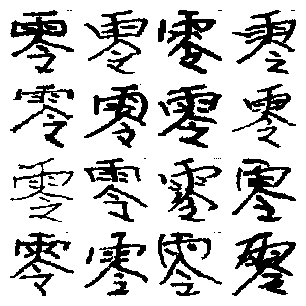 零零零零
零零零零
零零零零
零零零零